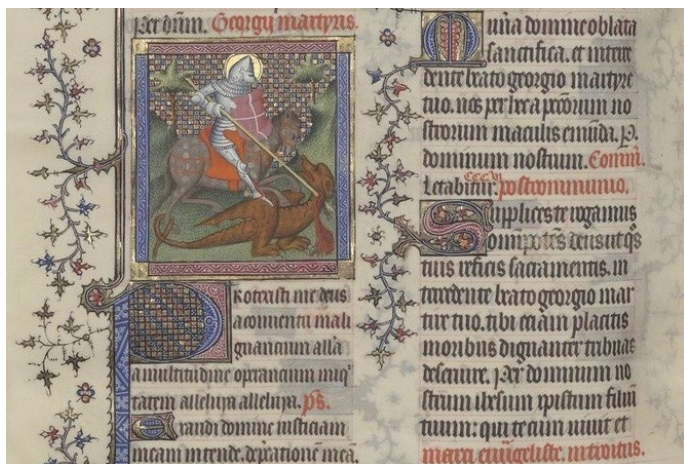 per dūm. Georgii martyris.
Protexisti me deus
a conventu mali
gnancium alla
a multitudine operancium iniq̄
tatem alleluya alleluya. p̄s.
Exaudi domine iusticiam
meam intende deprecationē meā.
Munera domine oblata
sanctifica. et interce
dente beato georgio martyre
tuo. nos per hec a peccatorum no
strorum maculis emunda. P.
dominum nostrum. Comm̄.
Letabitur. CCC VI postcommunio.
Supplices te rogamus
omnipotēs deus ut q̄s
tuis reficis sacramentis. in
tercedente beato georgio mar
tire tuo. tibi eciam placitis
moribus dignanter tribuas
deservire. Per dominum no
strum ihesum xpistum filium
tuum: qui tecum vivit et
marci euūgeliste. introitus.